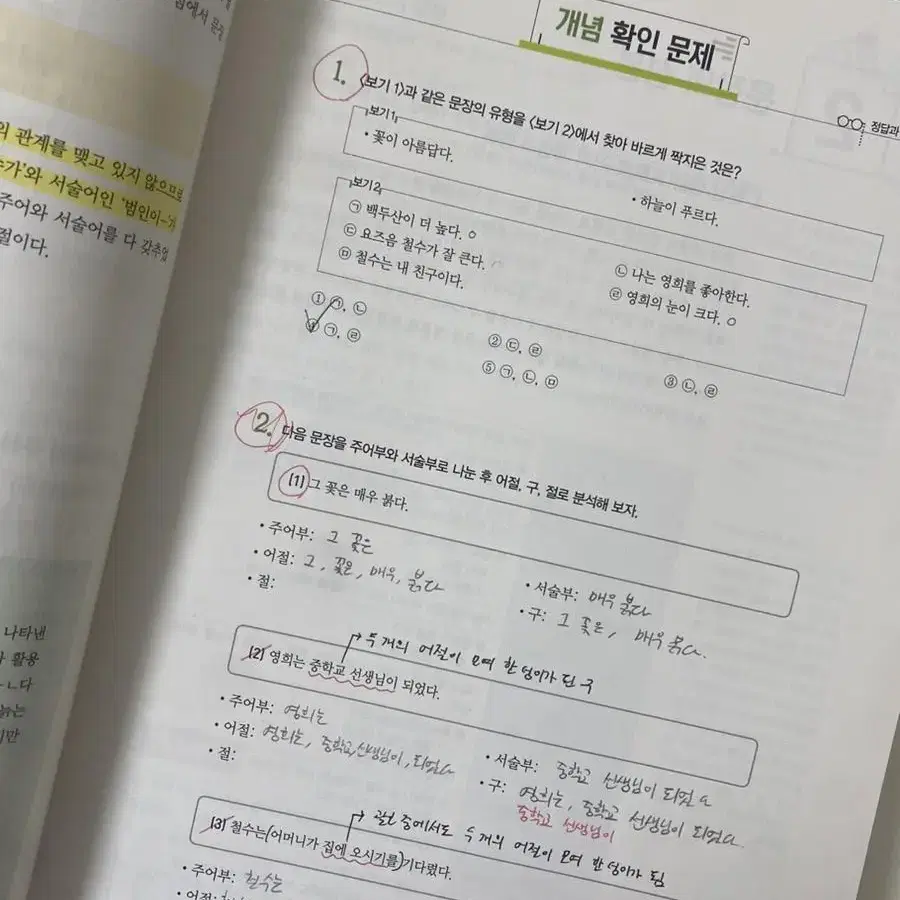 의 관계를 맺고 있지 않으므로
가'와 서술어인 '범인이
주어와 서술어를 다 갖추었
절이다.
나타낸
활용
ㄴ다
늙는
지만
개념 확인 문제
정답과
1. <보기 1>과 같은 문장의 유형을 <보기 2>에서 찾아 바르게 짝지은 것은?
보기1
• 꽃이 아름답다.
• 하늘이 푸르다.
보기2
㉠ 백두산이 더 높다. ○
㉡ 나는 영희를 좋아한다.
㉢ 요즈음 철수가 잘 큰다.
㉣ 영희의 눈이 크다. ○
㉤ 철수는 내 친구이다.
① ㉠, ㉡
② ㉢, ㉣
③ ㉡, ㉣
④ ㉠, ㉣
⑤ ㉠, ㉡, ㉤
2. 다음 문장을 주어부와 서술부로 나눈 후 어절, 구, 절로 분석해 보자.
(1) 그 꽃은 매우 붉다.
• 주어부: 그 꽃은
• 서술부: 매우 붉다
• 어절: 그, 꽃은, 매우, 붉다
• 구: 그 꽃은, 매우 붉다.
• 절:
두 개의 어절이 모여 한 덩이가 된 구
(2) 영희는 중학교 선생님이 되었다.
• 주어부: 영희는
• 서술부: 중학교 선생님이 되었다
• 어절: 영희는, 중학교, 선생님이, 되었다
• 구: 영희는, 중학교 선생님이 되었다.
중학교 선생님이
• 절:
관안 중에서도 두 개의 어절이 모여 한 덩이가 됨
(3) 철수는(어머니가 집에 오시기를)기다렸다.
• 주어부: 철수는
• 어절: